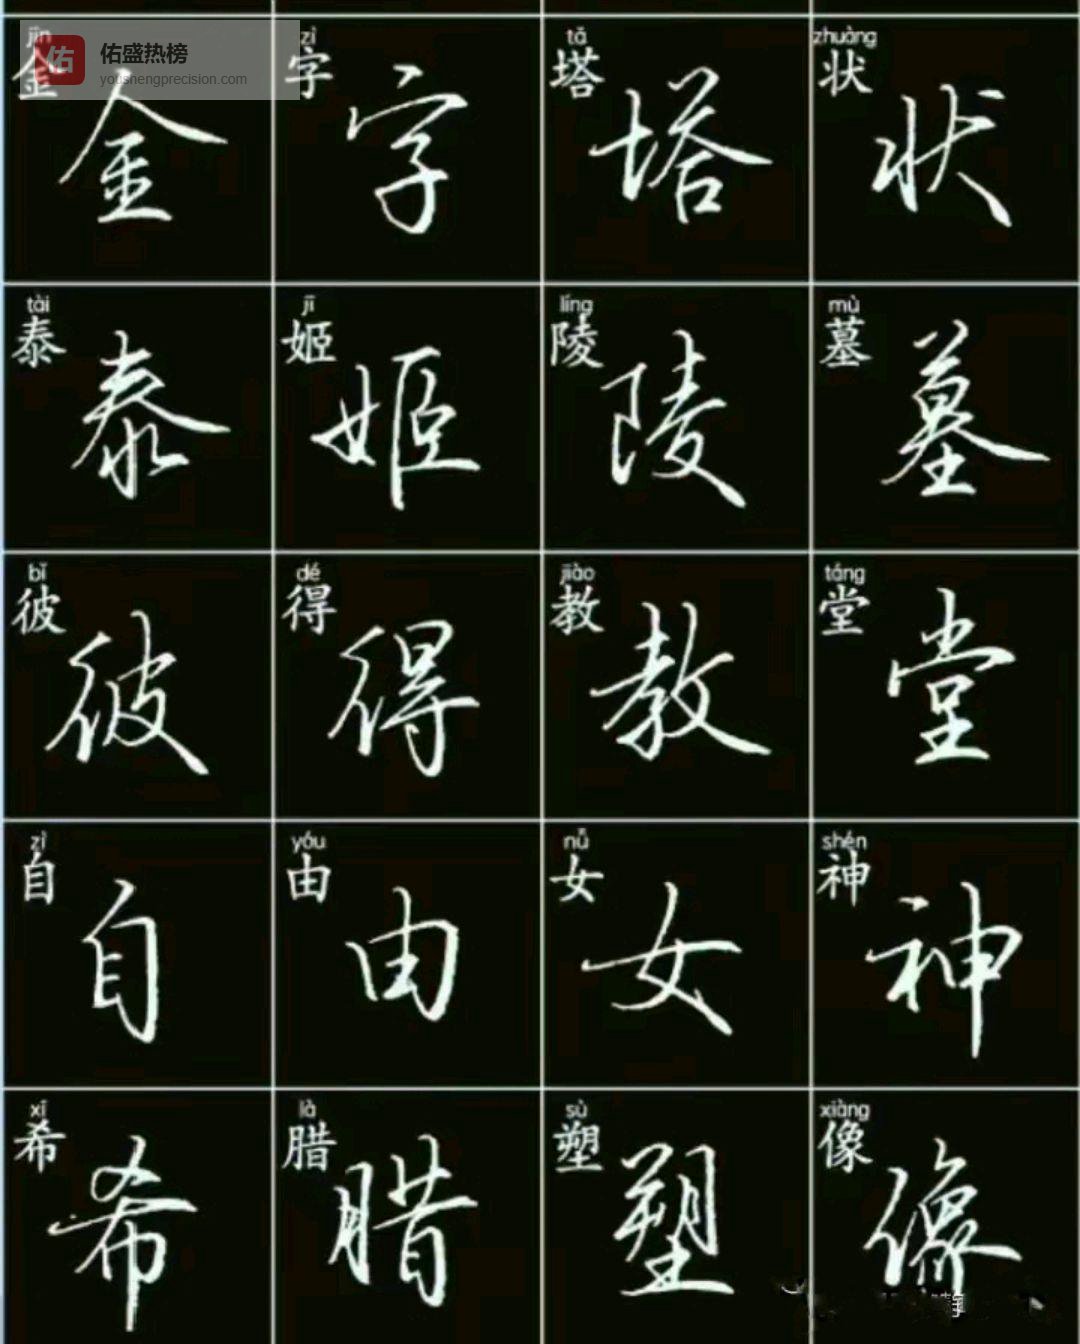 佑 佑盛热榜
youshengprecision.com
jīn zì tǎ zhuàng
金 字 塔 状
金 字 塔 状
tài jī líng mù
泰 姬 陵 墓
泰 姬 陵 墓
bǐ dé jiào táng
彼 得 教 堂
彼 得 教 堂
zì yóu nǚ shén
自 由 女 神
自 由 女 神
xī là sù xiàng
希 腊 塑 像
希 腊 塑 像